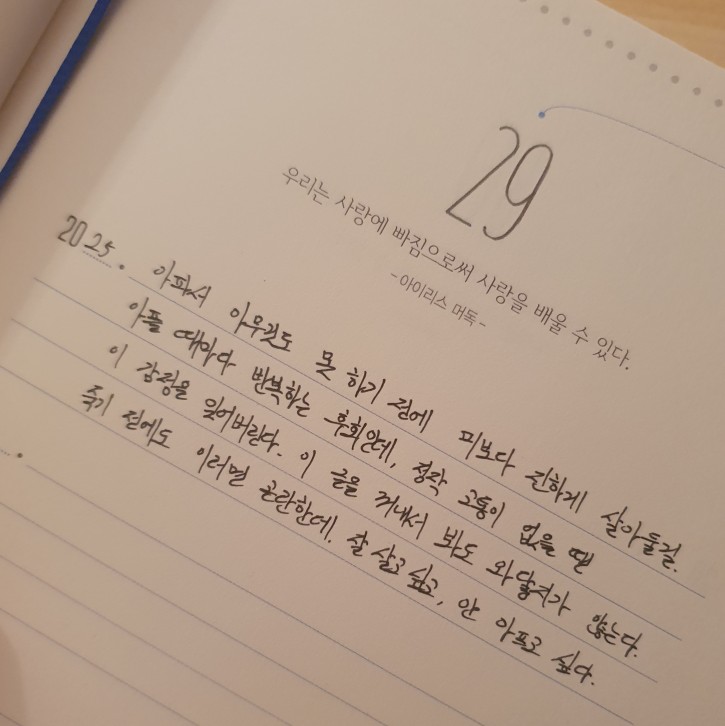 29
우리는 사랑에 빠짐으로써 사랑을 배울 수 있다.
-아이리스 머독-
2025. 아파서 아무것도 못 하기 전에 피보다 진하게 살아둘걸.
아플 때마다 반복하는 후회인데, 정작 고통이 없을 땐
이 감정을 잊어버린다. 이 글을 꺼내서 봐도 와닿지가 않는다.
죽기 전에도 이러면 곤란한데. 잘 살고 싶고, 안 아프고 싶다.